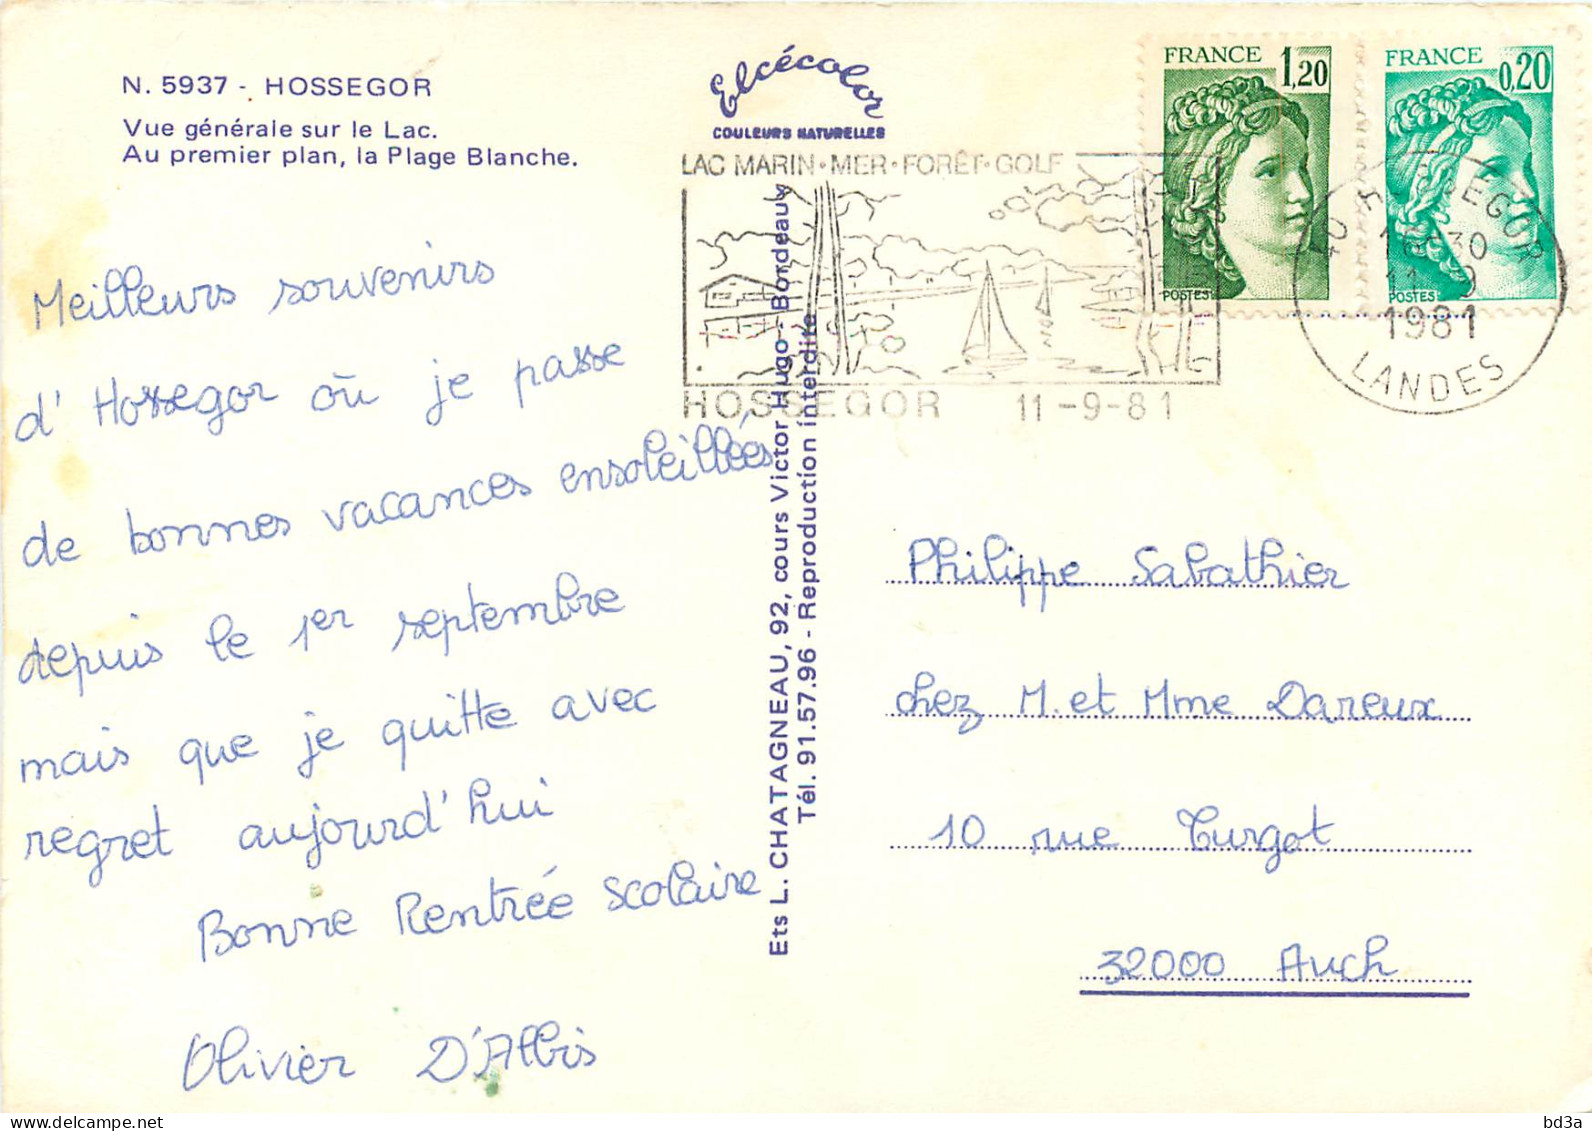 N. 5937 - HOSSEGOR
Vue générale sur le Lac.
Au premier plan, la Plage Blanche.
Elcécolor
COULEURS NATURELLES
FRANCE 1,20
POSTES
FRANCE 0,20
POSTES
LAC MARIN·MER·FORÊT·GOLF
HOSSEGOR 11-9-81
1981
LANDES
Meilleurs souvenirs
d'Hossegor où je passe
de bonnes vacances ensoleillées
depuis le 1er septembre
mais que je quitte avec
regret aujourd'hui
Bonne Rentrée scolaire
Olivier D'Albis
Ets L. CHATAGNEAU, 92, cours Victor Hugo - Bordeaux
Tél. 91.57.96 - Reproduction interdite
Philippe Sabathier
chez M. et Mme Dareux
10 rue Turgot
32000 Auch
bd3a